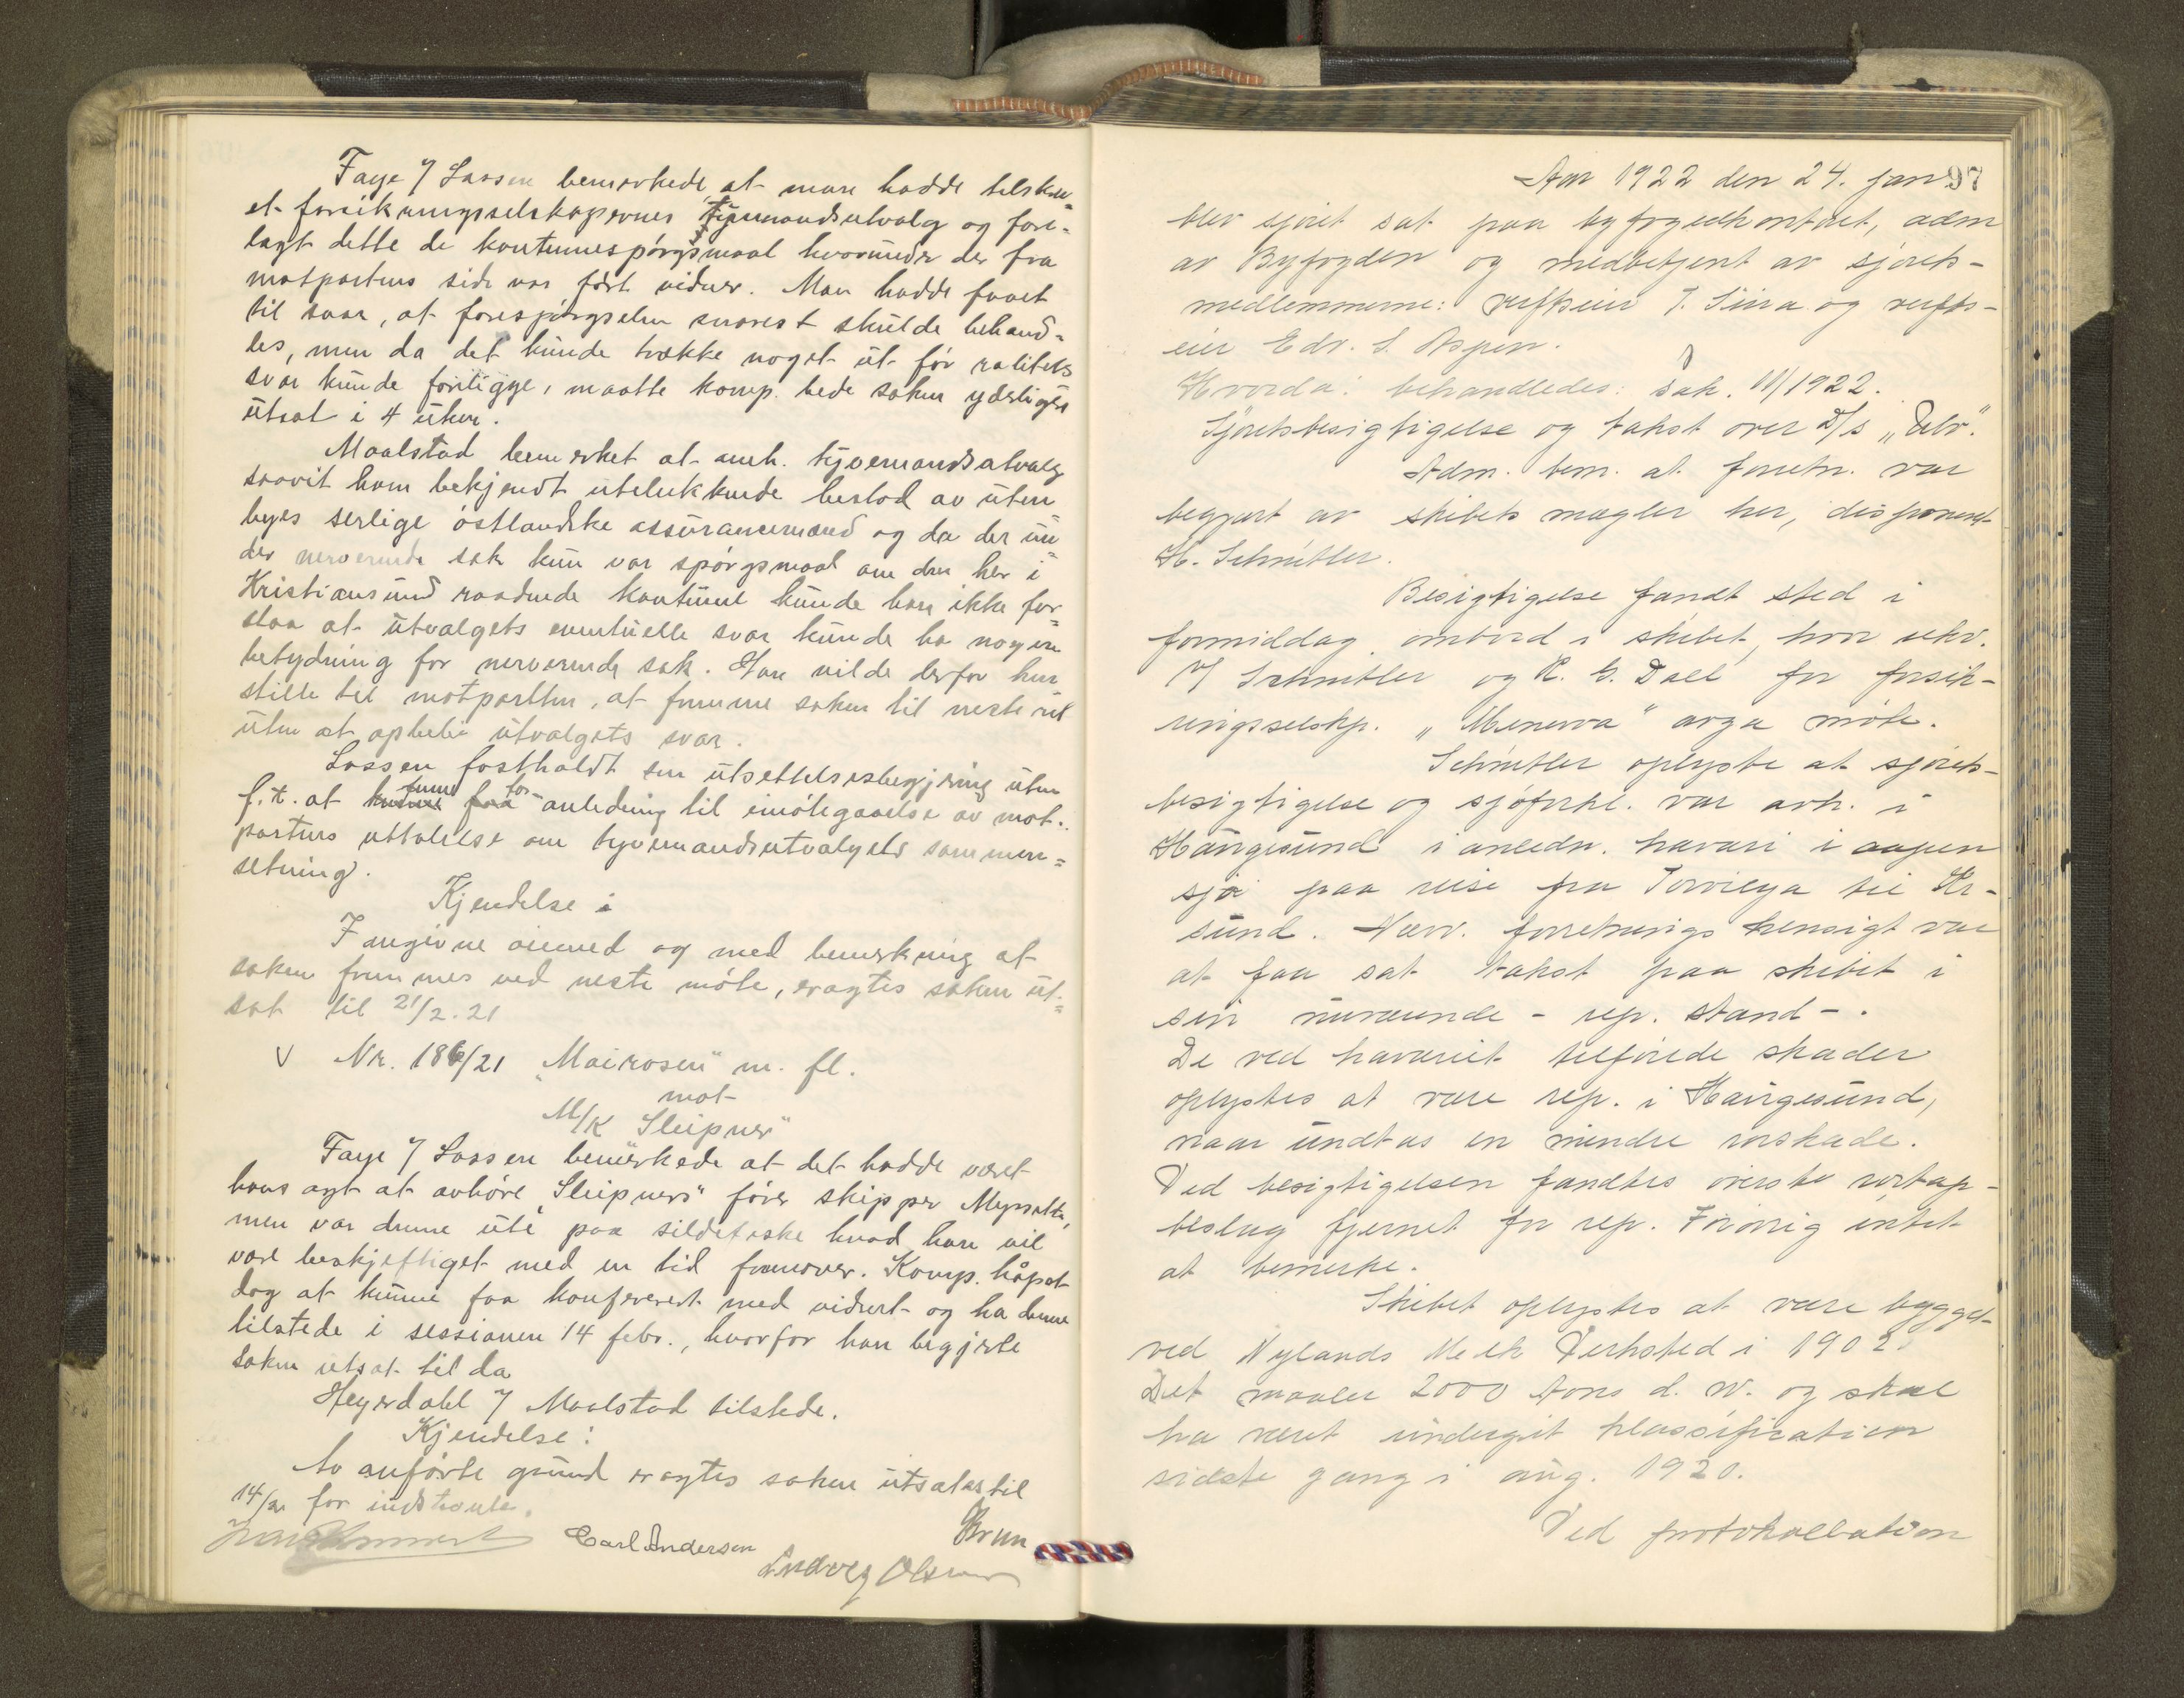 Faye f/ Lassen bemerkede at man hadde tilskrev-
et forsikringsselskapernes tjuemandsutvalg og fore-
lagt dette de kontumespørgsmaal hvorunder der fra
motpartens side var ført vidner. Man hadde faaet
til svar, at forespørgselen snarest skulde behand-
les, men da det kunde trække noget ut før realitets
svar kunde foreligge, maatte komp. bede saken yderligere
utsat i 4 uker.
Maalstad bemerket at anh. tyvemandsutvalg
saavit ham bekjendt utelukkende bestod av uten
byes særlige østlandske assurancemænd og da der un
der nærværende sak kun var spørgsmaal om den her i
Kristiansund raadende kontume kunde han ikke for-
staa at utvalgets eventuelle svar kunde ha nogen
betydning for nærværende sak. Han vilde derfor hen
stille til motparten, at fremme saken til neste ret
uten at opbeie utvalgets svar.
Lassen fastholdt sin utsettelsesbegjæring uten
f. t. at finne for anledning til imøtegaaelse av mot-
partens uttalelse om tyvemandsutvalgets sammen-
setning.
Kjendelse:
I angivne øiemed og med bemerkning at
saken fremmes ved neste møte, eragtes saken ut-
sat til 21/2. 21
V Nr. 186/21 "Mairosen" m. fl.
mot
M/K "Sleipner"
Faye f/ Lassen bemerkede at det hadde været
hans agt at avhøre "Sleipners" fører skipper
men var denne ute paa sildefiske hvad han vil
være beskjeftiget med en tid fremover. Komp. håpet
dog at kunne faa konfereret med vidnet og ha denne
tilstede i sessionen 14 febr., hvorfor han begjærte
saken utsat til da
Heyerdahl f/ Maalstad tilstede.
Kjendelse:
Av anførte grund eragtes saken utsættes til
14/2 for indstevnte.
Brun
Carl Anderson
Ludvig Olsen
Aar 1922 den 24. jan 97
blev sjøret sat paa byfogedkontoret, adm
av Byfogden og medbetjent av sjørets-
medlemmerne: verftseier J. Sira og verfts-
eier Edv. S. Aspen.
Hvorda: behandledes: sak. 11/1922.
Sjøretsbesigtigelse og takst over D/s
Adm. bem. at forretn. var
begjært av skibets mægler her, disponent
H. Schnitler.
Besigtigelse fandt sted i
formiddag ombord i skibet, hvor sekr.
f/ Schnitler og R. G. Dall for forsik-
ringsselskp. "Menerva" avga møte.
Schnitler oplyste at sjørets-
besigtigelse og sjøforkl. var avh. i
Haugesund i anledn. havari i aapen
sjø paa reise fra Torrevieja til Kr-
sund. Nærv. forretnings hensigt var
at faa sat takst paa skibet i
sin nuværende - rep. stand -.
De ved havariet tilførede skader
oplystes at være rep. i Haugesund,
naar undtas en mindre rorskade.
Ved besigtigelsen fandtes øverste rortap-
beslag fjernet for rep. Forøvrig intet
at bemerke.
Skibet oplystes at være bygget
ved Nylands Mek Verksted i 1902.
Det maaler 2000 tons d. w. og skal
ha været undergit klassifikation
sidste gang i aug. 1920.
Ved protokollation